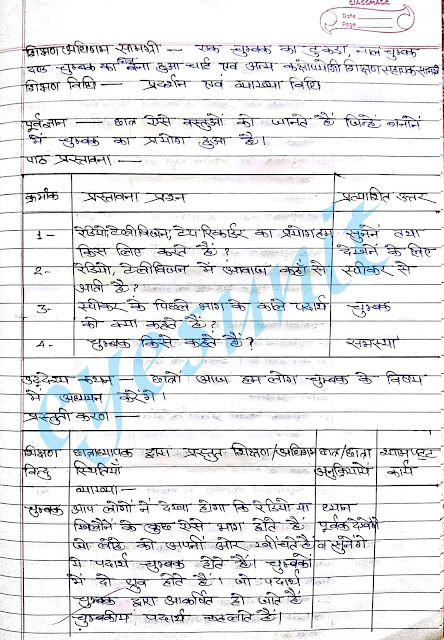 CLASSMATE
Date
Page
शिक्षण अधिगम सामग्री — एक चुम्बक का टुकड़ा, नाल चुम्बक
दण्ड चुम्बक का बना हुआ चार्ट एवं अन्य कक्षोपयोगी शिक्षण सहायक सामग्री
शिक्षण विधि — प्रदर्शन एवं व्याख्या विधि
पूर्वज्ञान — छात्र ऐसे वस्तुओं को जानते हैं जिन्हें बनाने
में चुम्बक का प्रयोग हुआ है।
पाठ प्रस्तावना —
क्रमांक प्रस्तावना प्रश्न प्रत्याशित उत्तर
1- रेडियो, टेलीविजन, टेप रिकार्डर का प्रयोग हम सुनने तथा
किस लिए करते हैं? देखने के लिए
2- रेडियो, टेलीविजन में आवाज कहाँ से स्पीकर से
आती है?
3- स्पीकर के पिछले भाग के काले पदार्थ चुम्बक
को क्या कहते हैं?
4- चुम्बक किसे कहते हैं? समस्या
उद्देश्य कथन — छात्रों आज हम लोग चुम्बक के विषय
में अध्ययन करेंगे।
प्रस्तुतीकरण —
शिक्षण छात्राध्यापक द्वारा प्रस्तुत शिक्षण/अधिगम छात्र/छात्रा श्यामपट्ट
बिन्दु स्थितियां अनुक्रियायें कार्य
व्याख्या —
चुम्बक आप लोगों ने देखा होगा कि रेडियो या ध्यान
खिलौनों के कुछ ऐसे भाग होते हैं पूर्वक देखेंगे
जो लोहे को अपनी ओर खींचते हैं व सुनेंगे
ये पदार्थ चुम्बक होते हैं। चुम्बकों
में दो ध्रुव होते हैं। जो पदार्थ
चुम्बक द्वारा आकर्षित हो जाते हैं
चुम्बकीय पदार्थ कहलाते हैं।
eyesunit